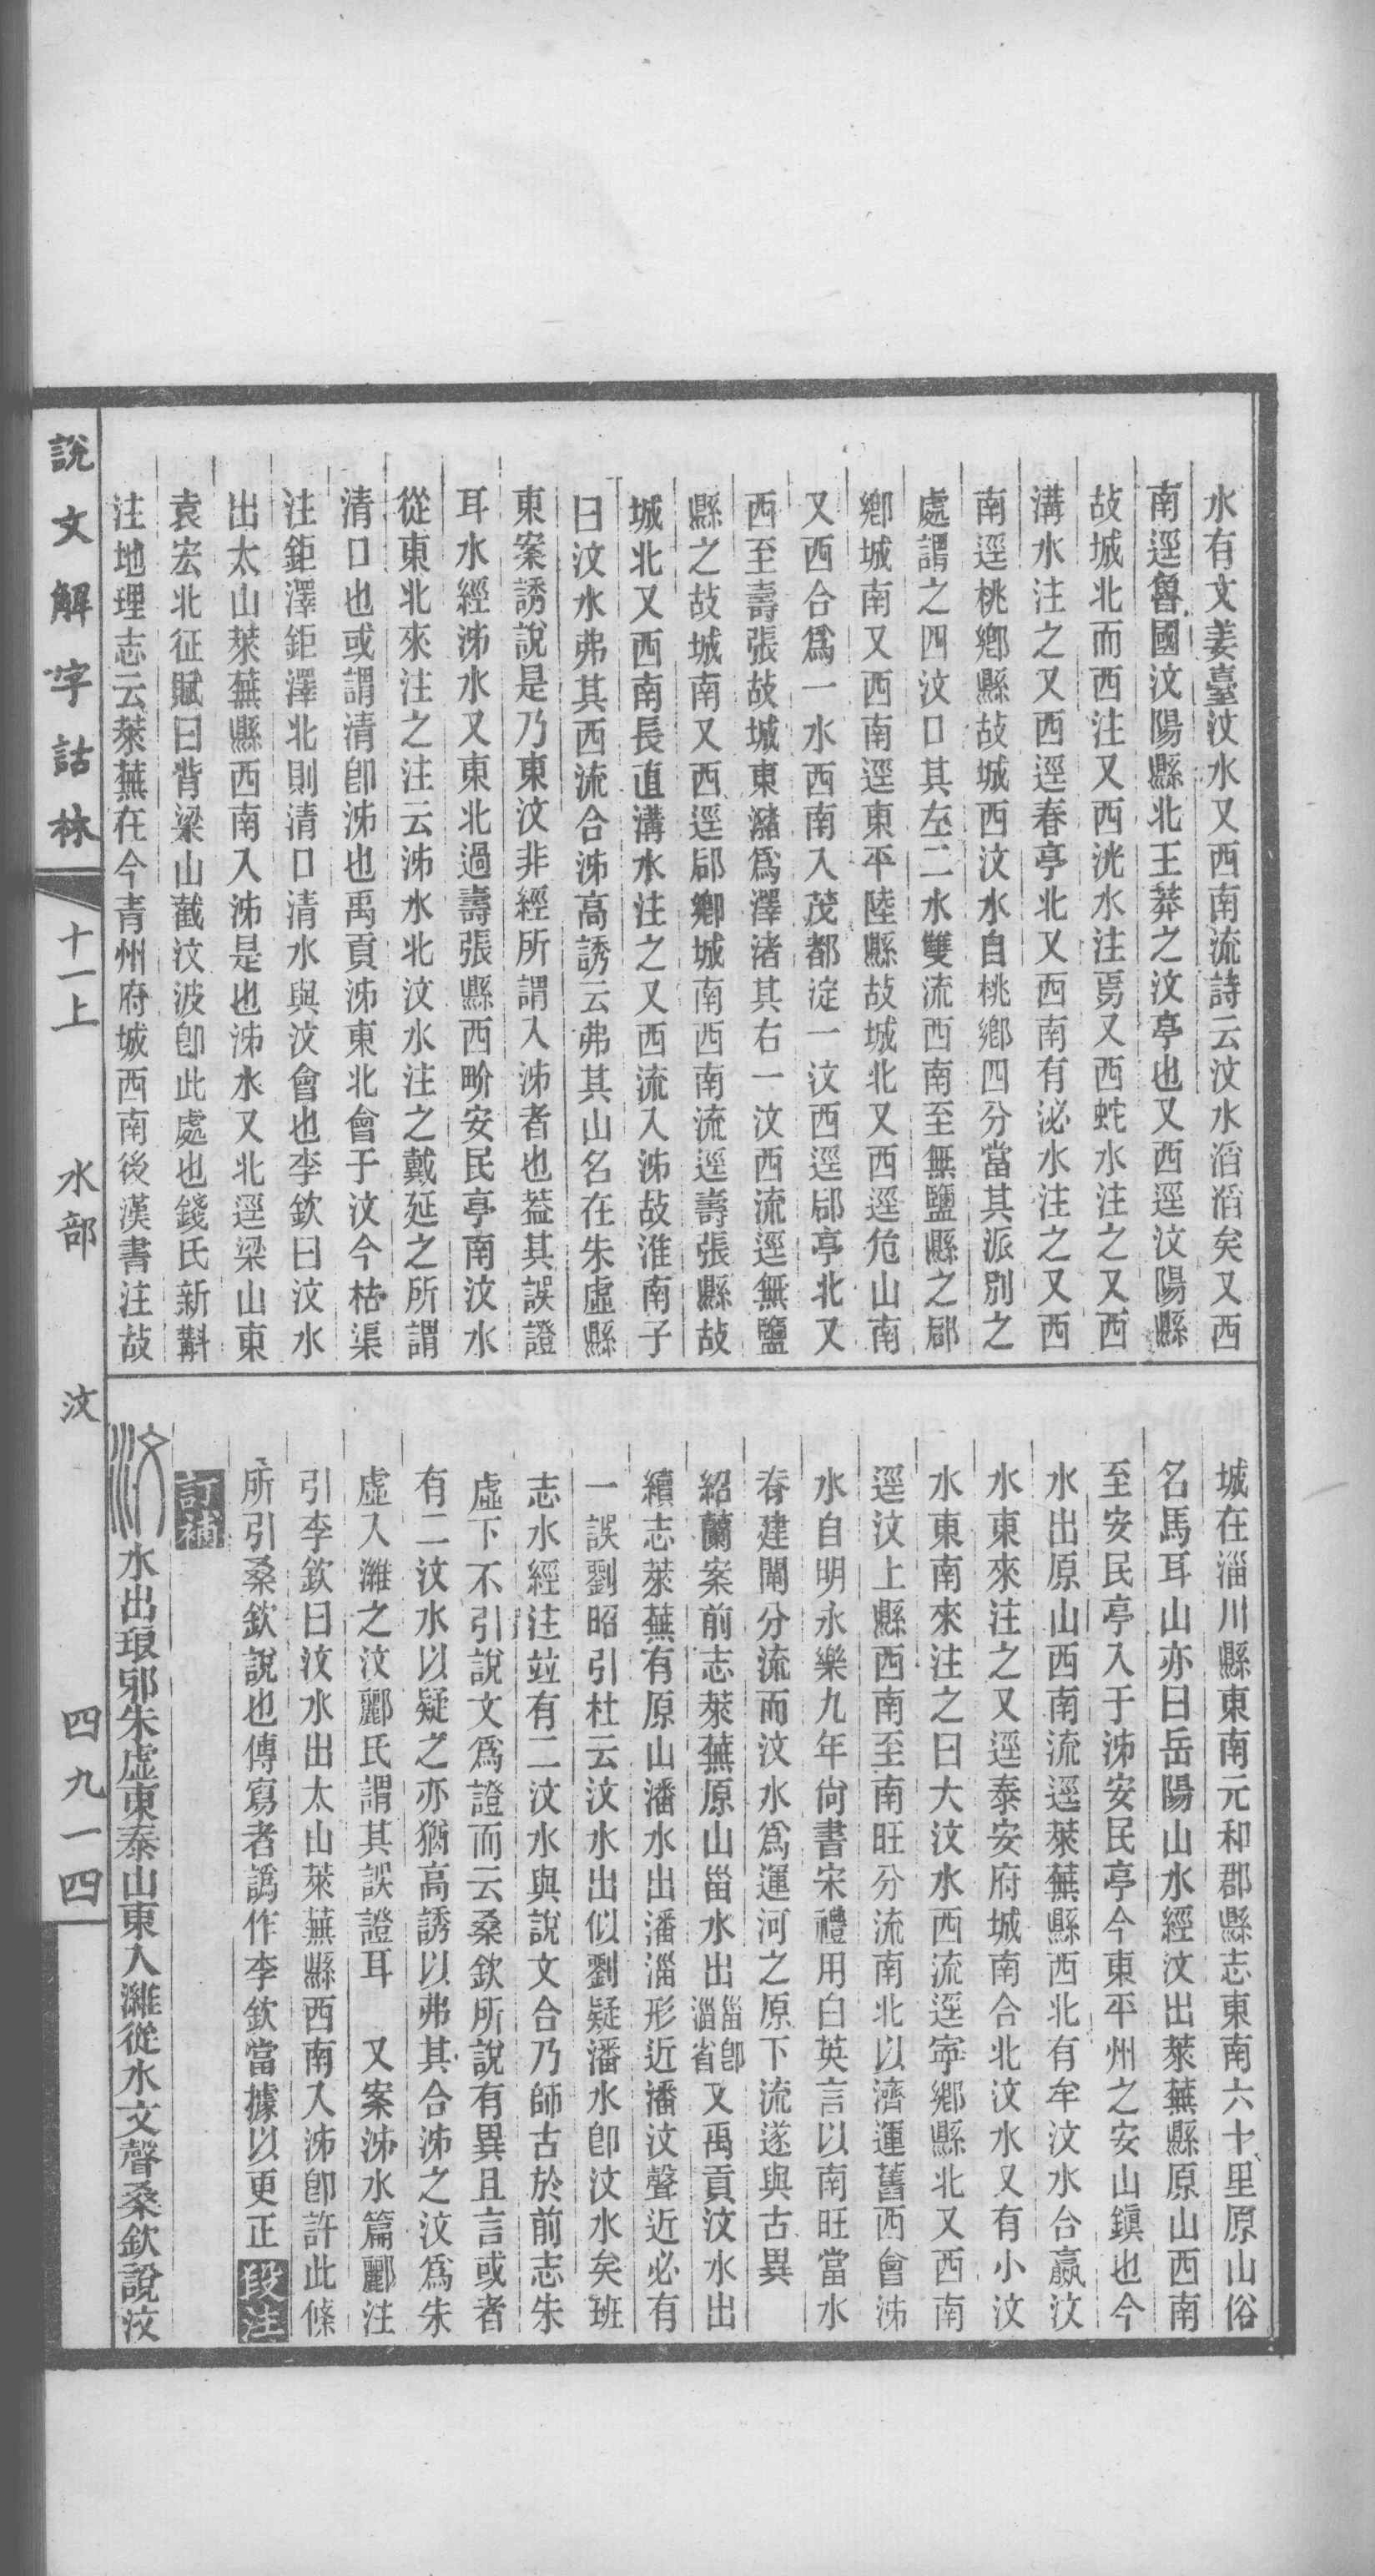 水有文姜臺汶水又西南流詩云汶水滔滔矣又西
南逕魯國汶陽縣北王莽之汶亭也又西逕汶陽縣
故城北而西注又西洸水注焉又西蛇水注之又西
溝水注之又西逕春亭北又西南有泌水注之又西
南逕桃鄉縣故城西汶水自桃鄉四分當其派別之
處謂之四汶口其左二水雙流西南至無鹽縣之郈
鄉城南又西南逕東平陸縣故城北又西逕危山南
又西合爲一水西南入茂都淀一汶西逕郈亭北又
西至壽張故城東瀦爲澤渚其右一汶西流逕無鹽
縣之故城南又西逕郈鄉城南西南流逕壽張縣故
城北又西南長直溝水注之又西流入泲故淮南子
曰汶水弗其西流合泲高誘云弗其山名在朱虛縣
東案誘說是乃東汶非經所謂入泲者也葢其誤證
耳水經泲水又東北過壽張縣西畍安民亭南汶水
從東北來注之注云泲水北汶水注之戴延之所謂
清口也或謂清卽泲也禹貢泲東北會于汶今枯渠
注鉅澤鉅澤北則清口清水與汶會也李欽曰汶水
出太山萊蕪縣西南入泲是也泲水又北逕梁山東
袁宏北征賦曰背梁山截汶波卽此處也錢氏新斠
注地理志云萊蕪在今青州府城西南後漢書注故
城在淄川縣東南元和郡縣志東南六十里原山俗
名馬耳山亦曰岳陽山水經汶出萊蕪縣原山西南
至安民亭入于泲安民亭今東平州之安山鎮也今
水出原山西南流逕萊蕪縣西北有牟汶水合嬴汶
水東來注之又逕泰安府城南合北汶水又有小汶
水東南來注之曰大汶水西流逕寧鄉縣北又西南
逕汶上縣西南至南旺分流南北以濟運舊西會泲
水自明永樂九年尙書宋禮用白英言以南旺當水
脊建閘分流而汶水爲運河之原下流遂與古異
紹蘭案前志萊蕪原山甾水出甾卽淄省又禹貢汶水出
續志萊蕪有原山潘水出潘淄形近潘汶聲近必有
一誤劉昭引杜云汶水出似劉疑潘水卽汶水矣班
志水經注竝有二汶水與說文合乃師古於前志朱
虛下不引說文爲證而云桑欽所說有異且言或者
有二汶水以疑之亦猶高誘以弗其合泲之汶爲朱
虛入濰之汶酈氏謂其誤證耳　又案泲水篇酈注
引李欽曰汶水出太山萊蕪縣西南入泲卽許此條
所引桑欽說也傳寫者譌作李欽當據以更正 段注
訂補
汶水出琅邪朱虛東泰山東入濰從水文聲桑欽說汶
說文解字詁林 十一上 水部 汶 四九一四